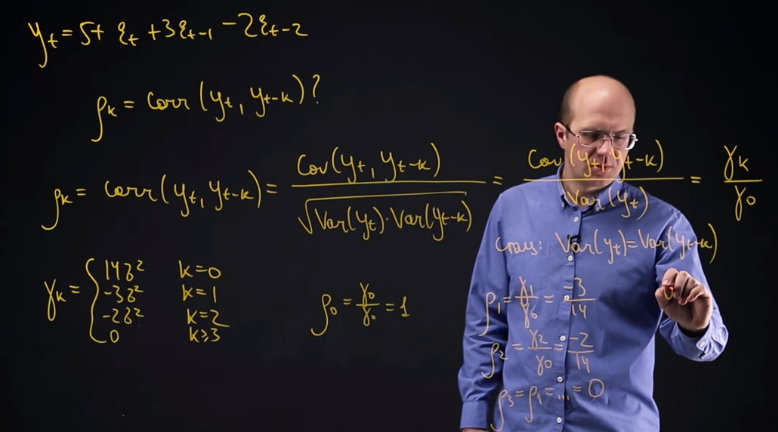 y_t = 5 + ε_t + 3ε_{t-1} - 2ε_{t-2}
ρ_k = corr(y_t, y_{t-k})?
ρ_k = corr(y_t, y_{t-k}) = Cov(y_t, y_{t-k}) / √(Var(y_t)·Var(y_{t-k})) = Cov(y_t, y_{t-k}) / Var(y_t) = γ_k / γ_0
Var(y_t) = Var(y_{t-k})
γ_k = { 14σ² k=0
-3σ² k=1
-2σ² k=2
0 k≥3
ρ_0 = γ_0 / γ_0 = 1
ρ_1 = γ_1 / γ_0 = -3 / 14
ρ_2 = γ_2 / γ_0 = -2 / 14
ρ_3 = ρ_4 = ... = 0